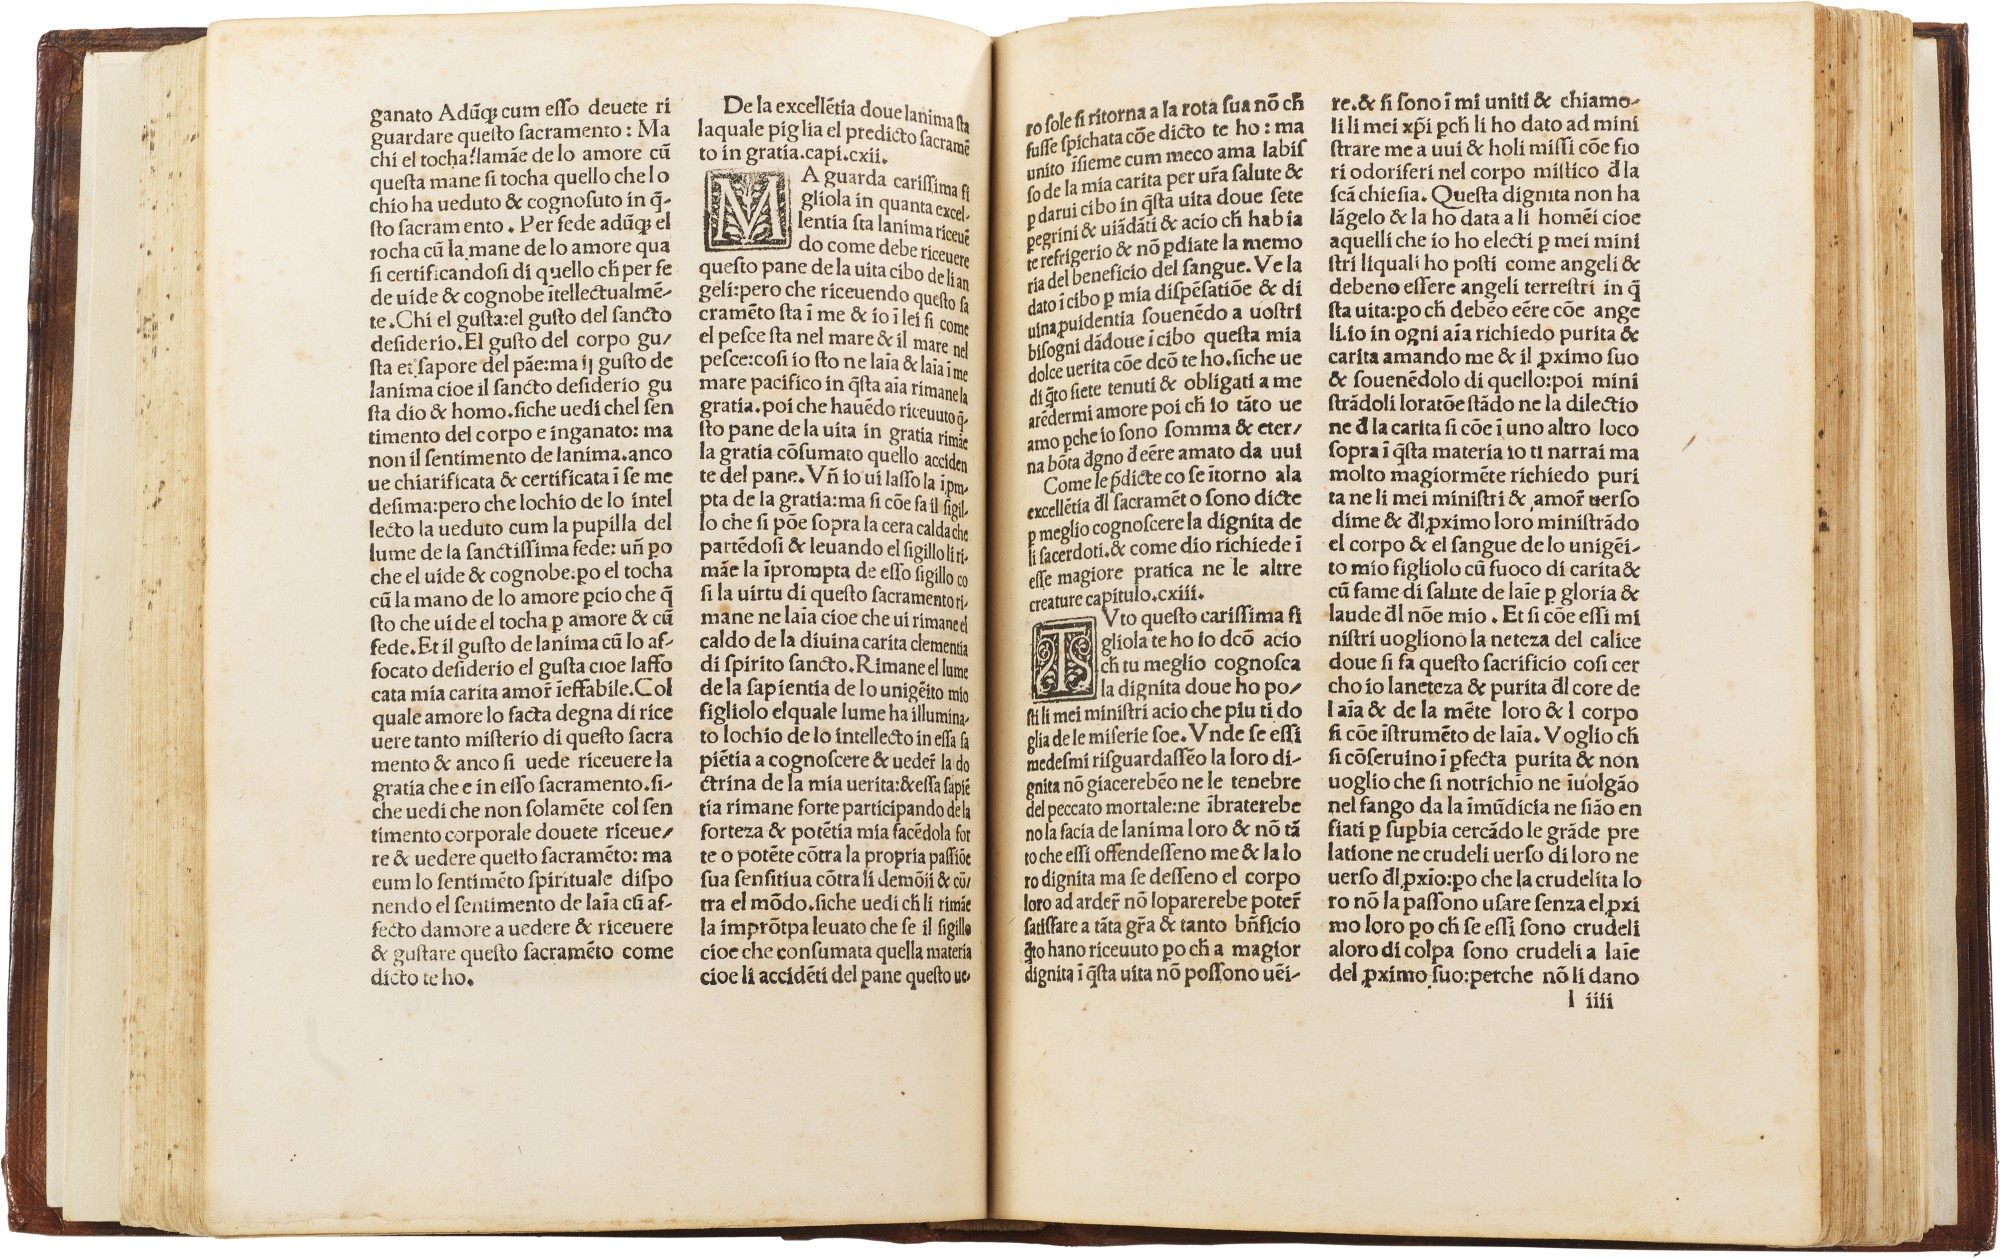 ganato Adũq; cum esso deuete ri
guardare questo sacramento: Ma
chi el tocha?lamãe de lo amore cũ
questa mane si tocha quello che lo
chio ha ueduto & cognosuto in q̃-
sto sacramento. Per fede adũq; el
tocha cũ la mane de lo amore qua
si certificandosi di quello ch̃ per fe
de uide & cognobe ĩtellectualmẽ-
te.Chi el gusta:el gusto del sancto
desiderio.El gusto del corpo gu/
sta el sapore del pãe:ma il gusto de
lanima cioe il sancto desiderio gu
sta dio & homo.siche uedi chel sen
timento del corpo e inganato: ma
non il sentimento de lanima.anco
ue chiarificata & certificata ĩ se me
desima:pero che lochio de lo intel
lecto la ueduto cum la pupilla del
lume de la sanctissima fede: uñ po
che el uide & cognobe:po el tocha
cũ la mano de lo amore ꝑcio che q̃
sto che uide el tocha ꝑ amore & cũ
fede.Et il gusto de lanima cũ lo af-
focato desiderio el gusta cioe laffo
cata mia carita amor̃ ĩeffabile.Col
quale amore lo facta degna di rice
uere tanto misterio di questo sacra
mento & anco si uede riceuere la
gratia che e in esso sacramento.si-
che uedi che non solamẽte col sen
timento corporale douete riceue/
re & uedere questo sacramẽto: ma
cum lo sentimẽto spirituale dispo
nendo el sentimento de laĩa cũ af-
fecto damore a uedere & riceuere
& gustare questo sacramẽto come
dicto te ho.
De la excellẽtia doue lanima sta
laquale piglia el predicto sacramẽ
to in gratia.capi.cxii.
MA guarda carissima fi
gliola in quanta excel-
lentia sta lanima riceuẽ
do come debe riceuere
questo pane de la uita cibo de li an
geli:pero che riceuendo questo sa
cramẽto sta ĩ me & io ĩ lei si come
el pesce sta nel mare & il mare nel
pesce:cosi io sto ne laĩa & laĩa ĩ me
mare pacifico in q̃sta aĩa rimane la
gratia.poi che hauẽdo riceuuto q̃-
sto pane de la uita in gratia rimãe
la gratia cõsumato quello acciden
te del pane.Vñ io ui lasso la ĩpm-
pta de la gratia:ma si cõe fa il sigil-
lo che si põe sopra la cera calda che
partẽdosi & leuando el sigillo li ri-
mãe la ĩprompta de esso sigillo co
si la uirtu di questo sacramento ri-
mane ne laĩa cioe che ui rimane el
caldo de la diuina carita clementia
di spirito sancto.Rimane el lume
de la sapientia de lo unigẽito mio
figliolo elquale lume ha illumina-
to lochio de lo intellecto in essa sa
piẽtia a cognoscere & ueder̃ la do
ctrina de la mia uerita:& essa sapiẽ
tia rimane forte participando de la
forteza & potẽtia mia facẽdola for
te o potẽte cõtra la propria passiõe
sua sensitiua cõtra li demõii & cõ/
tra el mõdo.siche uedi ch̃ li rimãe
la imprõtpa leuato che se il sigillo
cioe che consumata quella materia
cioe li accidẽti del pane questo ue-
ro sole si ritorna a la rota sua nõ ch̃
fusse spichata cõe dicto te ho: ma
unito ĩsieme cum meco ama labis
so de la mia carita per ur̃a salute &
ꝑ darui cibo in q̃sta uita doue sete
ꝑegrini & uiãdãti & acio ch̃ habia
te refrigerio & nõ ꝑdiate la memo
ria del beneficio del sangue.Ve la
dato ĩ cibo ꝑ mia dispẽsatiõe & di
uina puidentia souenẽdo a uostri
bisogni dãdoue ĩ cibo questa mia
dolce uerita cõe dcõ te ho.siche ue
di q̃to siete tenuti & obligati a me
arẽdermi amore poi ch̃ io tãto ue
amo ꝑche io sono somma & eter/
na bõta đgno đ eẽre amato da uui
Come le p̃dicte co se ĩtorno ala
excellẽtia đl sacramẽto sono dicte
ꝑ meglio cognoscere la dignita de
li sacerdoti.& come dio richiede ĩ
esse magiore pratica ne le altre
creature capitulo.cxiii.
TVto questo carissima fi
gliola te ho io dcõ acio
ch̃ tu meglio cognosca
la dignita doue ho po/
sti li mei ministri acio che piu ti do
glia de le miserie soe.Vnde se essi
medesmi risguardassẽo la loro di-
gnita nõ giacerebẽo ne le tenebre
del peccato mortale:ne ĩbraterebe
no la facia de lanima loro & nõ tã
to che essi offendesseno me & la lo
ro dignita ma se desseno el corpo
loro ad arder̃ nõ loparerebe poter̃
satisfare a tãta gr̃a & tanto bñficio
q̃to hano riceuuto po ch̃ a magior
dignita ĩ q̃sta uita nõ possono uẽi-
re.& si sono ĩ mi uniti & chiamo-
li li mei xp̃i ꝑch̃ li ho dato ad mini
strare me a uui & holi missi cõe fio
ri odoriferi nel corpo mistico đ la
scã chiesia.Questa dignita non ha
lãgelo & la ho data a li homẽi cioe
aquelli che io ho electi ꝑ mei mini
stri liquali ho posti come angeli &
debeno essere angeli terrestri in q̃
sta uita:po ch̃ debẽo eẽre cõe ange
li.io in ogni aĩa richiedo purita &
carita amando me & il ꝓximo suo
& souenẽdolo di quello:poi mini
strãdoli loratõe stãdo ne la dilectio
ne đ la carita si cõe ĩ uno altro loco
sopra ĩ q̃sta materia io ti narrai ma
molto magiormẽte richiedo puri
ta ne li mei ministri & amor̃ uerso
di me & đl ꝓximo loro ministrãdo
el corpo & el sangue de lo unigẽi-
to mio figliolo cũ fuoco di carita &
cũ fame di salute de laĩe ꝑ gloria &
laude đl nõe mio. Et si cõe essi mi
nistri uogliono la neteza del calice
doue si fa questo sacrificio cosi cer
cho io la neteza & purita đl core de
laĩa & de la mẽte loro & l corpo
si cõe ĩstrumẽto de laĩa.Voglio ch̃
si cõseruino ĩ ꝑfecta purita & non
uoglio che si notrichio ne ĩuolgão
nel fango da la ĩmũdicia ne sião en
fiati ꝑ supbia cercãdo le grãde pre
latione ne crudeli uerso di loro ne
uerso đl ꝓxĩo:po che la crudelita lo
ro nõ la passono usare senza el ꝓxi
mo loro po ch̃ se essi sono crudeli
aloro di colpa sono crudeli a laĩe
del ꝓximo suo:perche nõ li dano
l iiii